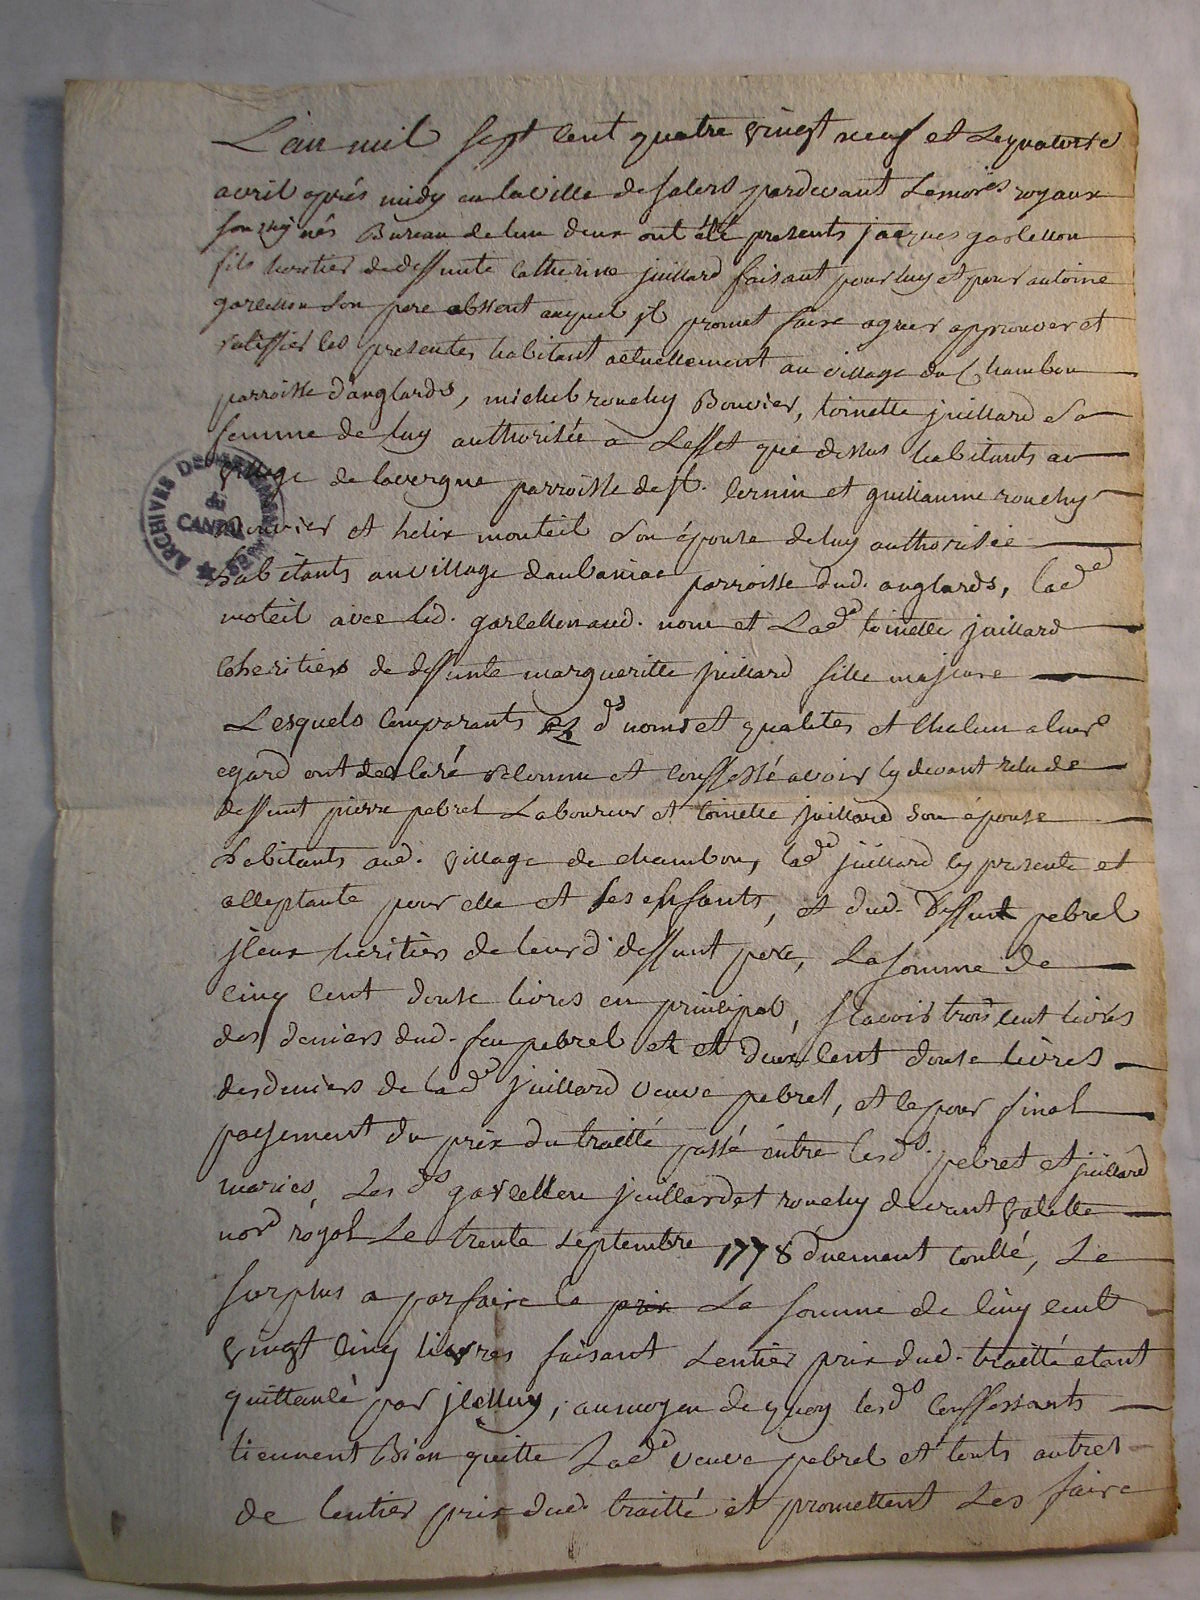 L'an mil sept cent quatre vingt neuf et le quatorse
avril après midy en la ville de salers pardevant les no.res royaux
soussignés Bureau de l'un deux ont été presents jacques garcellon
fils heritier de deffunte catherine juillard faisant pour luy et pour antoine
garcellon son pere absent auquel jl promet faire agreer approuver et
ratiffier les presentes habitant actuellement au village du Chambon
parroisse d'anglards, michel rouchy Bouvier, toinette juillard sa
femme de luy authorisée a l'effet que dessus habitants au
village de lavergne parroisse de st. cernin et guillaume rouchy
Bouvier et helix monteil son épouse de luy authorisée
habitants au village daubaniac parroisse dud. anglards, lad.e
moteil avec led. garcellon aud. nom et Lad.e toinette juillard
coheritiers de deffunte margueritte juillard fille majeure
Lesquels comparants ez d.s noms et qualités et chacun a leur
egard ont declaré reconnu et conffessé avoir cy devant recu de
deffunt pierre pebrel Laboureur et toinette juillard son épouse
habitants aud. village de chambon, lad.e juillard cy presente et
acceptante pour elle et ses enfants, et dud. deffunt pebrel
jceux heritiers de leurd. deffunt père, La somme de
cinq cent douse livres en principal, scavoir trois cent livres
des deniers dud. feu pebrel et et deux cent douse livres
des deniers de lad.e juillard veuve pebrel, et ce pour final
payement du prix du traitté passé entre lesd.s pebrel et juillard
mariés, Les d.s garcellon juillard et rouchy devant valette
no.re royal Le trente septembre 1778 duement contlé, Le
surplus a parfaire la prix La somme de cinq cent
vingt cinq livres faisant L'entier prix dud. traitté etant
quittancé par jcelluy, au moyen de quoy lesd.s conffessants
tiennent Bien quitte Lad.e veuve pebrel et touts autres
de lentier prix dud. traitté et promettent Les faire
ARCHIVES DEPARTEMENTALES
CANTAL